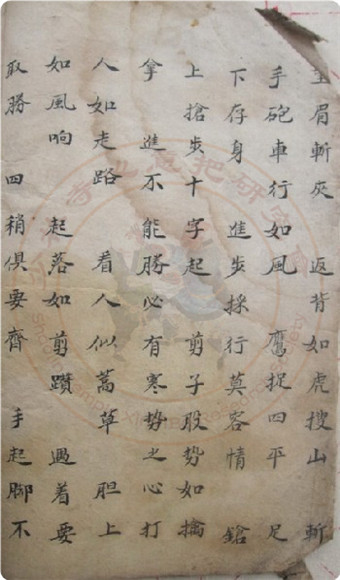 眉斬夾 返背如虎搜山 斬
手砲車行如風 鷹捉四平 足
下存身 進步採行莫容情 鎗
上搶步十字起 剪子股势如擒
拿 進不能勝必有寒势之心打
人如走路 看人似蒿草 胆上
如風响 起落如剪躦 遇着要
取勝 四稍俱要齊 手起脚不